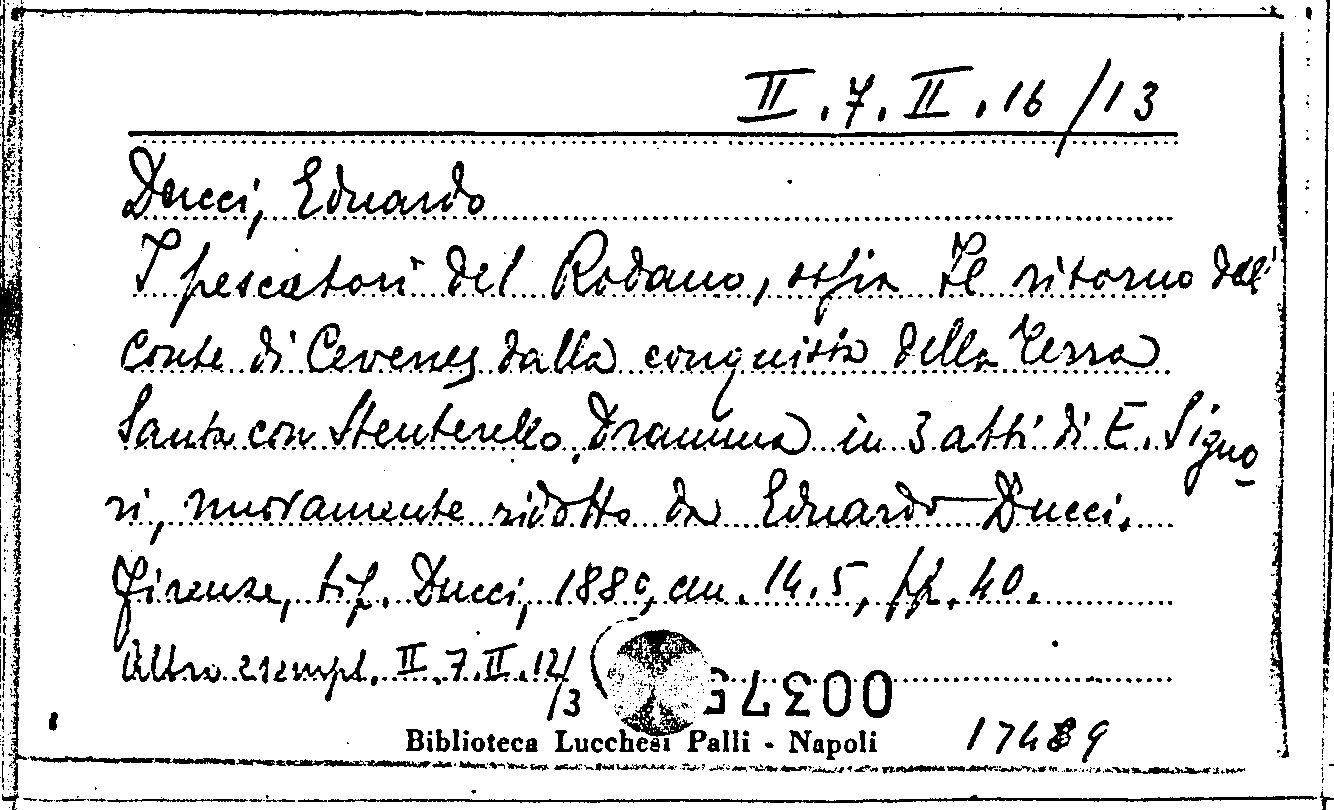 II.7.II.16/13
Ducci, Eduardo
I pescatori del Rodano, ossia Il ritorno del
Conte di Cevenes dalla conquista della Terra
Santa con Stenterello. Dramma in 3 atti di E. Signo
ri, nuovamente ridotto da Eduardo Ducci.
Firenze, tip. Ducci, 1880, cm. 14.5, pp. 40.
Altro esempl. II.7.II.12/3
Biblioteca Lucchesi Palli - Napoli